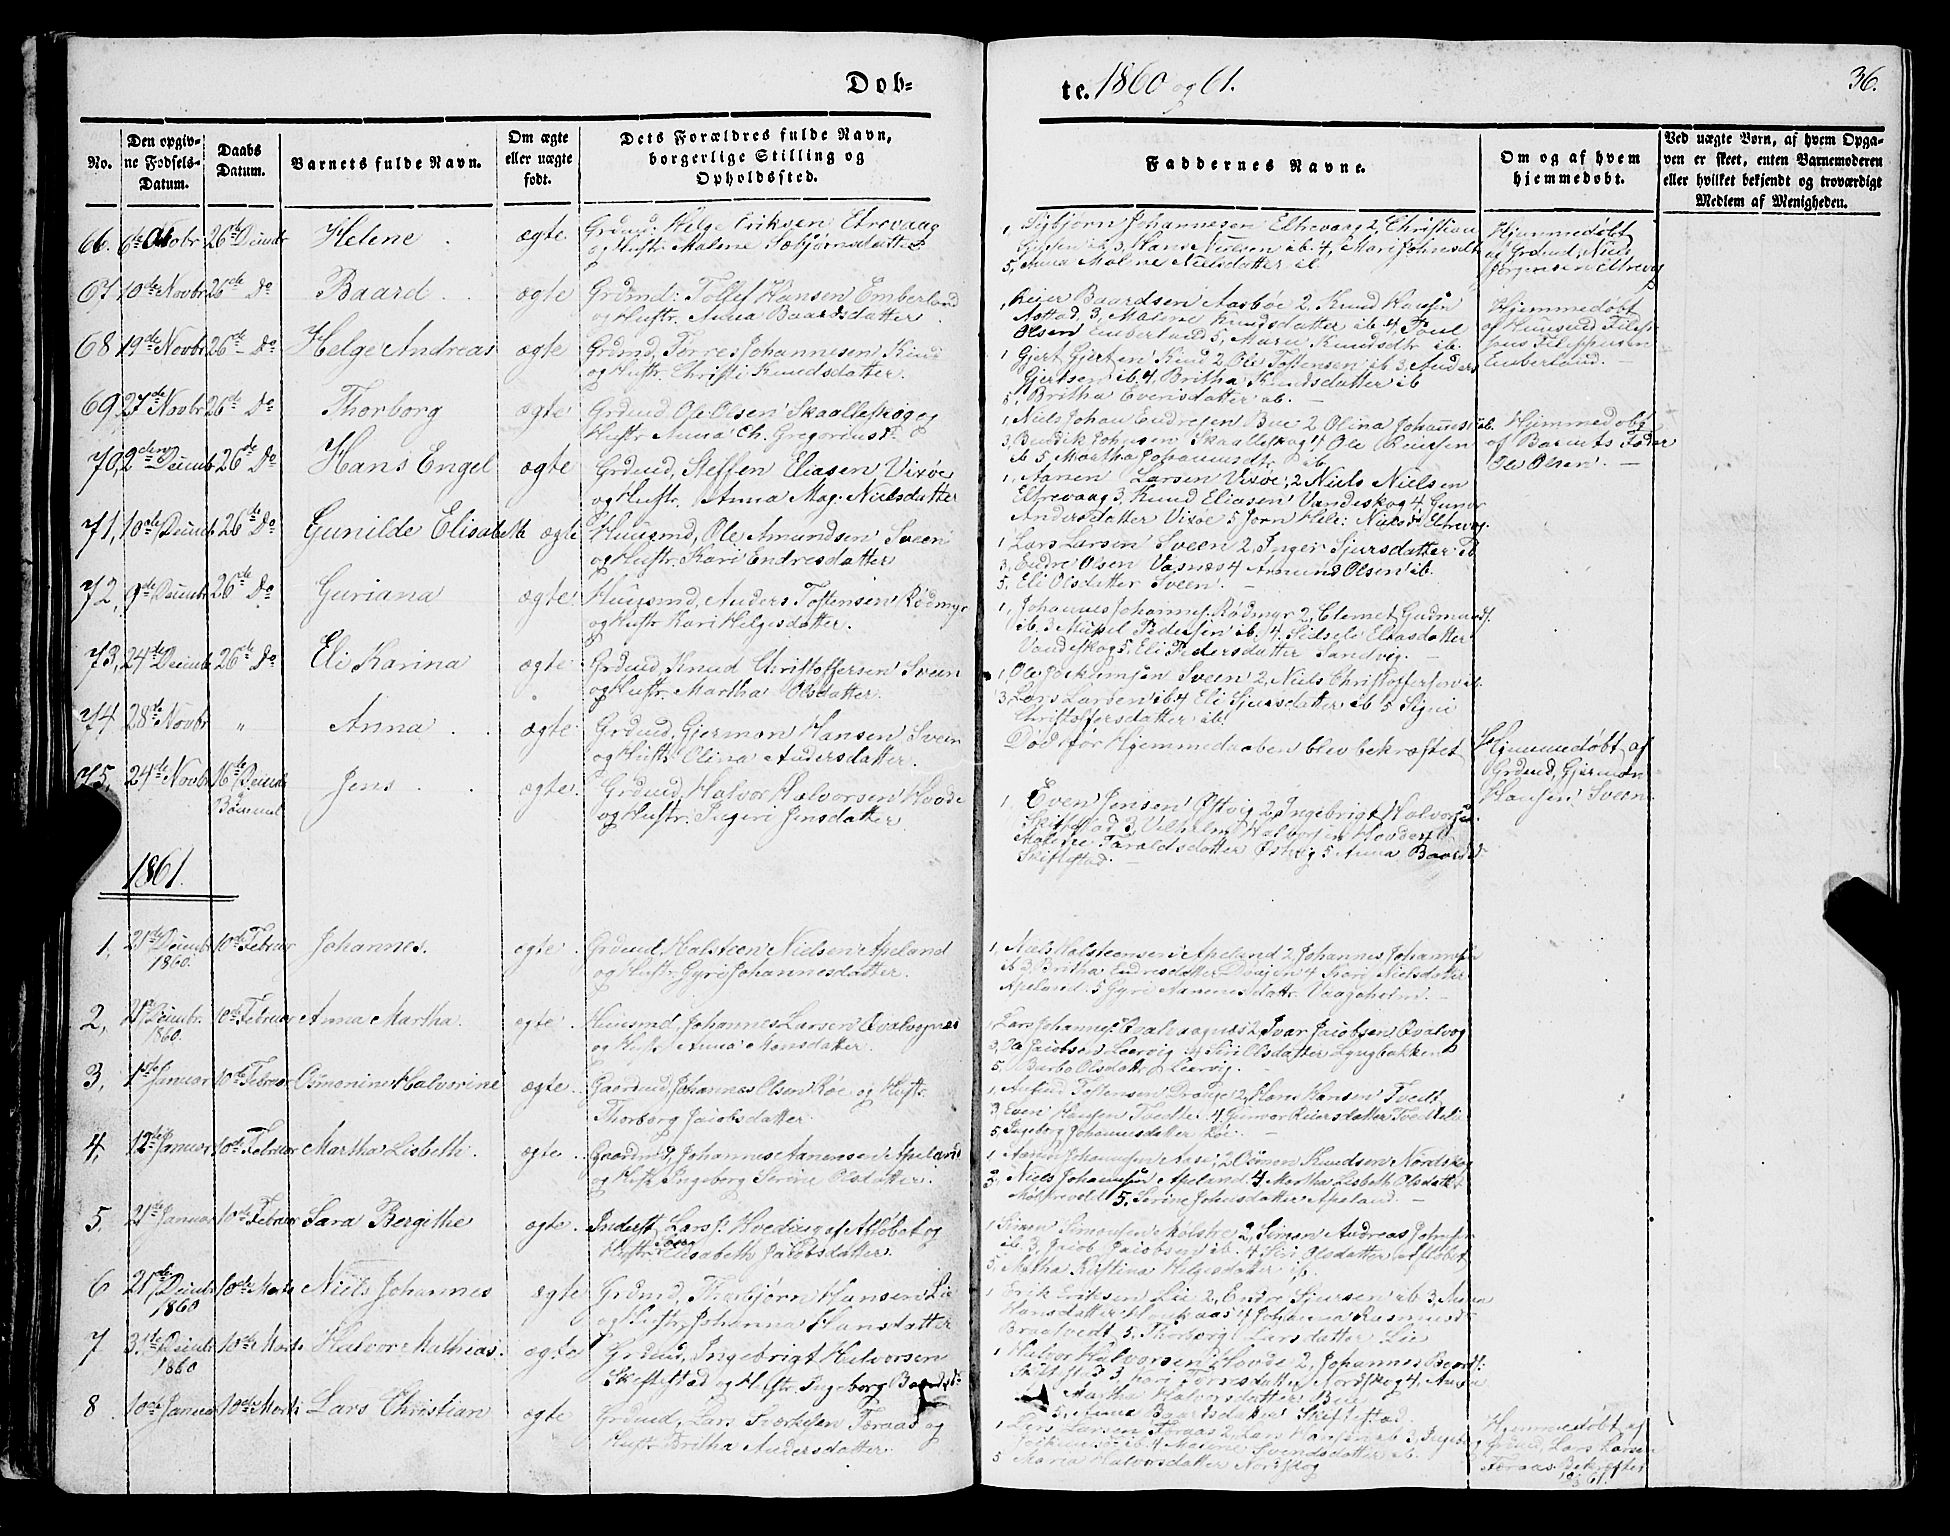 Døb-
te. 1860 og 61.
36.
No.
Den opgiv-
ne Fødsels-
Datum.
Daabs
Datum.
Barnets fulde Navn.
Om ægte
eller uægte
født.
Dets Forældres fulde Navn,
borgerlige Stilling og
Opholdssted.
Faddernes Navne.
Om og af hvem
hjemmedøbt.
Ved uægte Børn, af hvem Opga-
ven er skeet, enten Barnemoderen
eller hvilket bekjendt og troværdigt
Medlem af Menigheden.
66. 26de Decmbr Helene ægte Grdmd: Helge Eriksen Eltrevaag
og Hustr. Malene
1, Sigbjørn Johannesen Eltrevaag 2, Christian
ib 3, Hans Nielsen ib. 4, Mari Johnsdtr
5, Anna Malene Nielsdatter ib.
Hjemmedøbt
af Grdmd, Niels
Jørgensen Eltrevag
67 10de Novbr 26de Do Baard ægte Grdmd: Tollef Hansen Emberland
og Hustr. Anna Baardsdatter.
1, Reier Baardsen Aasbøe 2, Knud Hansen
3, Malene Knudsdatter ib 4, Poul
Olsen Emberland 5, Maru Knudsdtr ib.
Hjemmedøbt
af Huusmd Filip-
pus Filippusen
Emberland.
68 19de Novbr 26de Do Helge Andreas ægte Grdmd, Torres Johannesen Kind
og Hustr. Christi Knudsdatter.
1 Gjert Gjertsen Kind 2, Ole Tostensen ib 3, Anders
Gjertsen ib. 4, Britha Knudsdatter ib
5, Britha Evensdatter ib.
69, 27de Novbr 26de Do Thorborg ægte Grdmd Ole Olsen Skaalleskog og
Hustr Anna Ch. Gregoriusd.
1, Niels Johan Endresen Bue 2 Olina Johannesd ib.
3, Johnsen Skaalleskog 4 Ole
ib 5 Martha Johannesdtr. ib.
Hjemmedøbt
af Barnets Fader
Ole Olsen.
70, 2den Decmbr 26de Do Hans Engel ægte Grdmd, Steffen Eliasen Vixøe
og Hustr. Anna Mag. Nielsdatter
1, Aanen Larsen Vixøe, 2 Niels Nielsen
Eltrevaag 3, Knud Eliasen Vandeskog 4, Gunor
Andersdatter Vixøe 5, Jorn Hele: Nielsdr Eltrevag.
71, 10de Decmbr 26de Do Gunilde Elisabeth ægte Huusmd, Ole Amundsen Sveen
og Hustr. Kari Endresdatter
1 Lars Larsen Sveen 2, Inger Sjursdatter ib
3, Endre Olsen Vasnæs 4 Amund Olsen ib.
5, Eli Olsdatter Sveen.
72, 9de Decmbr 26de Do Guriana ægte Huusmd, Anders Tostensen Rødmyr
og Hustr Kari Helgesdatter.
1, Johannes Johannes. Rødmyr 2, Clemet Gudmunds.
ib. 3 Mikkel Pedersen ib. 4. Sidsele Eliasdatter
Vandeskog 5, Eli Pedersdatter Sandvig.
73, 24de Decmbr 26de Do Eli Karina ægte Grdmd, Knud Christoffersen Sveen
og Hustr. Martha Olsdatter.
1, Ole Sveen 2, Niels Christoffersen ib.
3, Lars Larsen ib 4 Eli Sjursdatter ib 5 Signi
Christoffersdatter ib.
74 28de Novbr „ Anna ægte Grdmd, Gjermon Hansen Sveen
og Hustr Olina Andersdatter.
Død før Hjemmedaaben blev bekræftet
Hjemmedøbt af
Grdmd, Gjermon
Hansen Sveen.
75, 24de Novbr 16de Decmbr
Bømmel Jens ægte. Grdmd, Halvor Halvorsen Hovde
og Hustr. Ingeri Jensdatter
1, Even Jensen Østvig 2, Ingebrigt Halvorsen
Skiftestad 3, Vilhelm Halvorsen Hovde 4,
Malene Taraldsdatter Østvig 5 Anna Baardsd
Skiftestad.
1861.
1, 21de Decmbr
1860. 10de Februar Johannes. ægte Grdmd Halsteen Nielsen Apeland
og Hustr Gyri Johannesdatter.
1, Niels Halsteensen Apeland 2, Johannes Johannesen
ib 3, Britha Endresdatter 4 Kari Nielsdatter
Apeland 5 Gyri Aanensdattr. Vaageholm.
2, Decmbr.
1860. 10de Februar Anna Martha. ægte Huusmd, Johannes Larsen Qvalvognes
og Hustr Anna Monsdatter.
1, Lars Johannes. Qvalvaagnes 2, Ivar Jacobsen Qvalvog
3, Ole Jacobsen Leervig 4 Siri Olsdatter Lyngbakken
5, Barbo Olsdattr. Leervig.
3, 1ste Januar 10de Februar Osmonine Halvorine ægte Gaardmd, Johannes Olsen Røe og Hustr.
Thorborg Jacobsdatter.
1, Tostensen 2, Hans Hansen Tvedt
3, Even Hansen Tvedte 4, Gunvor Reiersdatter
5, Ingeborg Johannesdatter Røe.
4, 12te Januar 10de Februar Martha Lisbeth. ægte Gaardmd, Johannes Aanensen Apeland
og Hustr Ingeborg Serine Olsdatter.
1 Aanen Johannesen 2 Osmon Knudsen Nordskog
3, Niels Johannesen Apeland 4 Martha Lisbeth Olsdatter
5, Serine Johnsdatter Apeland.
5, 21de Januar 10de Februar Sara Bergithe ægte Inderst, Lars J. Hveding af Alføbet og
Hustr. Sara Elisabeth Jacobsdatter.
1 Simon Simonsen 2, Simon Andreas Johnsen
ib. 3, Jacob Jacobsen ib. 4 Siri Olsdatter
5, Martha Kirstina Helgesdatter ib.
6 21de Decmbr
1860 10de Marts Niels Johannes ægte Grdmd, Thorbjørn Hansen Lie
og Hustr, Johanna Hansdatter
1 Erik Eriksen Lie 2, Endre Sjursen ib 3, Anna
Hansdatter 4 Johanna Rasmusd
Braatvedt 5, Thorborg Larsdatter Lie
7 Decmbr
1860 10de Marts Halvor Mathias. ægte Grdmd, Ingebrigt Halvorsen
Skiftestad og Hustr. Ingeborg Baardsdtr.
1 Halvor Halvorsen Hovde 2, Johannes Baards.
Skiftestad 3, Torresdatter Nordskog 4, Anna
Martha Halvorsdatter Bue
5, Anna Baardsdatter Skiftestad.
8 10de Januar 10de Marts Lars Christian ægte Grdmd, Lars Foraas og
Hustr Britha Andersdatter.
1 Lars Larsen Foraas 2, Lars Hansen ib 3, Ingeborg
ib. 4 Malene Svendsdatter ib.
5 Maria Halvorsdatter Nordskog
Hjemmedøbt af
Grdmd, Lars Larsen
Foraas. Bekræftet